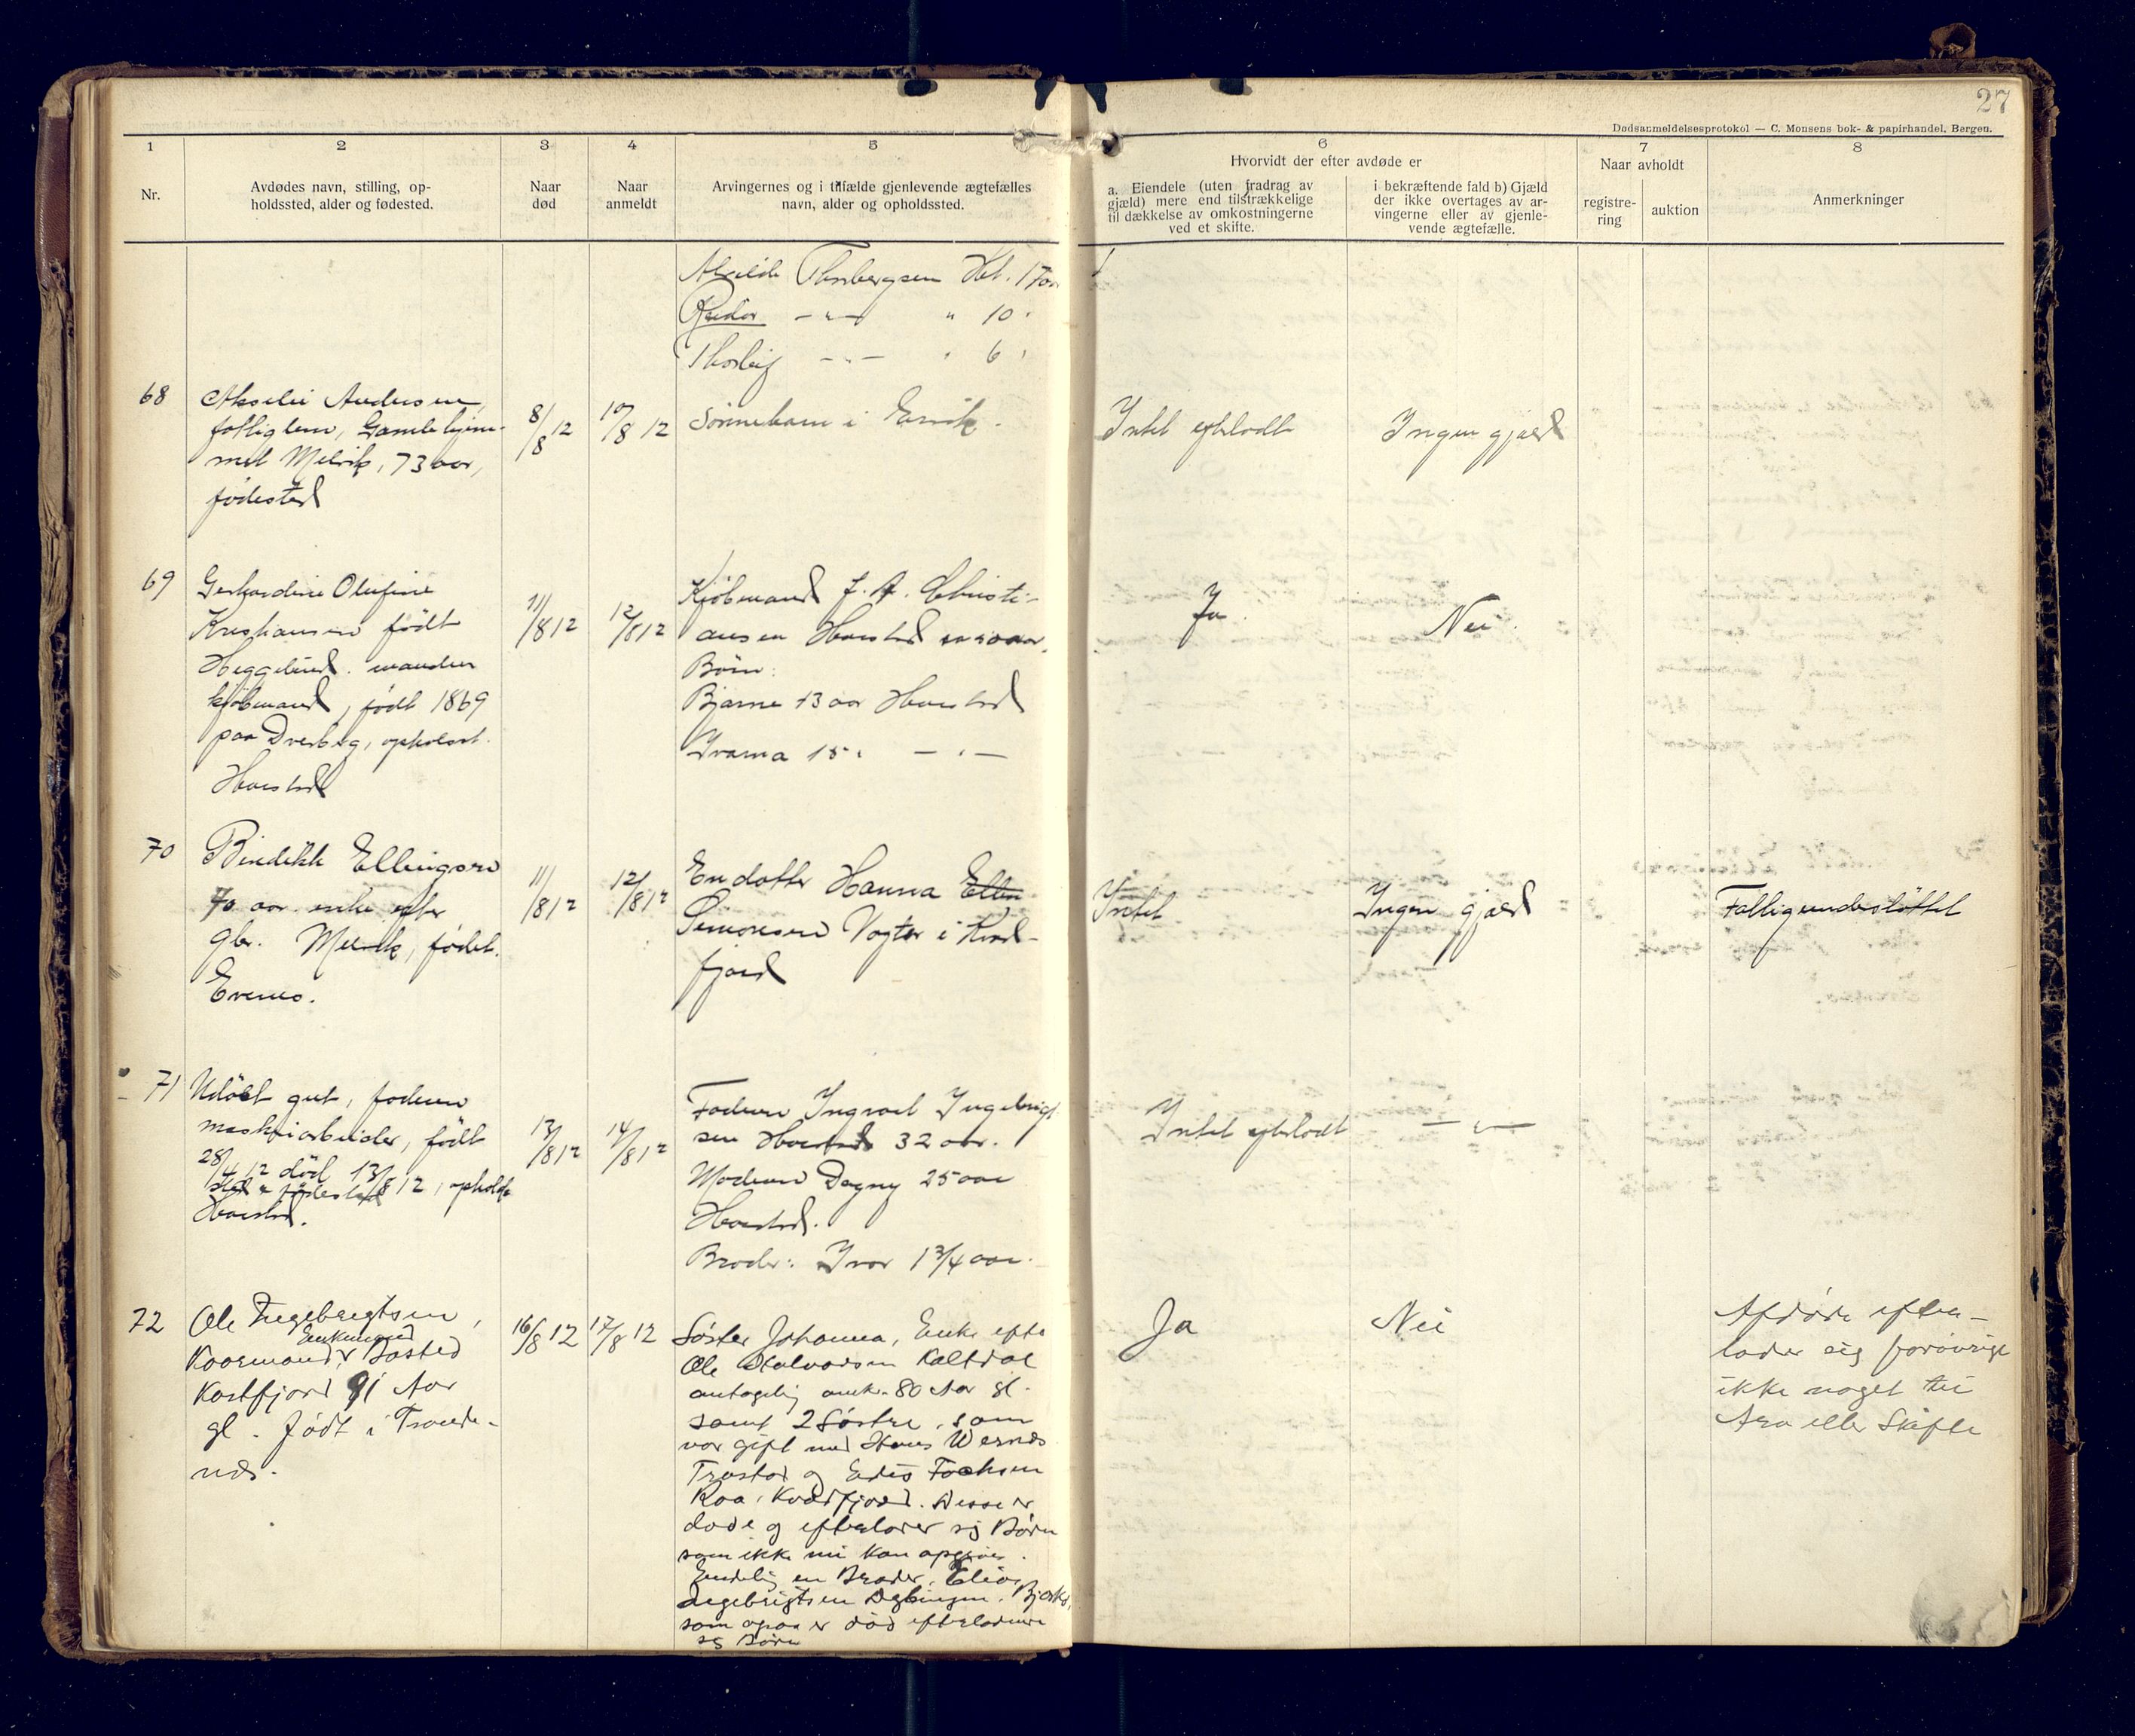 27
Dødsanmeldelsesprotokol — C. Monsens bok- & papirhandel, Bergen.
1
2
3
4
5
6
7
8
Nr.
Avdødes navn, stilling, op-
holdssted, alder og fødested.
Naar
død
Naar
anmeldt
Arvingernes og i tilfælde gjenlevende ægtefælles
navn, alder og opholdssted.
Hvorvidt der efter avdøde er
a. Eiendele (uten fradrag av
gjæld) mere end tilstrækkelige
til dækkelse av omkostningerne
ved et skifte.
i bekræftende fald b) Gjæld
der ikke overtages av ar-
vingerne eller av gjenle-
vende ægtefælle.
Naar avholdt
registre-
ring
auktion
Anmerkninger
Thorbergsen 17
Reidar — " — " 10 "
Thorleif — " — " 6 "
68
Andersen
fattiglem, Gamlehjem-
met Melvik, 73 aar,
fødested
8/8 12
10/8 12
Sønnebarn i
Intet efterladt
Ingen gjæld
69
Gerhardine Olufine
Kristiansen født
Heggelund. manden
kjøbmand, født 1869
paa Dverberg, opholdst.
Harstad
11/8 12
12/8 12
Kjøbmand J. A. Christi-
ansen Harstad
Børn:
Bjarne 13 aar Harstad
15 " — " —
Ja.
Nei.
70
Ellingsen
70 aar enke efter
gbr. Melvik, fødst.
Evenes.
11/8 12
12/8 12
En datter Hanna Ellin
Simonsen Vogter i Kvæd-
fjord
Intet
Ingen gjæld
Fattigunderstøttet
71
Udøbt gut, faderen
maskinarbeider, født
28/4 12 død 13/8 12, opholds-
sted & fødested
Harstad.
13/8 12
14/8 12
Faderen Ingvart Ingebrigt-
sen Harstad 32 aar.
Moderen Dagny 25 aar
Harstad.
Broder: Ivar 1 3/4 aar.
Intet efterladt
— " —
72
Ole Ingebrigtsen,
Enkemand
Kaarmand, Bosted
Kastfjord 91 Aar
gl. født i Tronde-
næs.
16/8 12
17/8 12
Søster Johanna, Enke efter
Ole Halvorsen Kaltdal
antagelig omkr. 80 Aar gl.
samt 2 Søstre, som
var gift med Hans
og
Kvædfjord. Disse er
døde og efterlader sig Børn
som ikke nu kan opgives.
Endelig en Broder, Elias
Ingebrigtsen
som ogsaa er død efterladende
sig Børn
Ja
Nei
Afdøde efter-
lader sig forøvrigt
ikke noget til
Arv eller Skifte